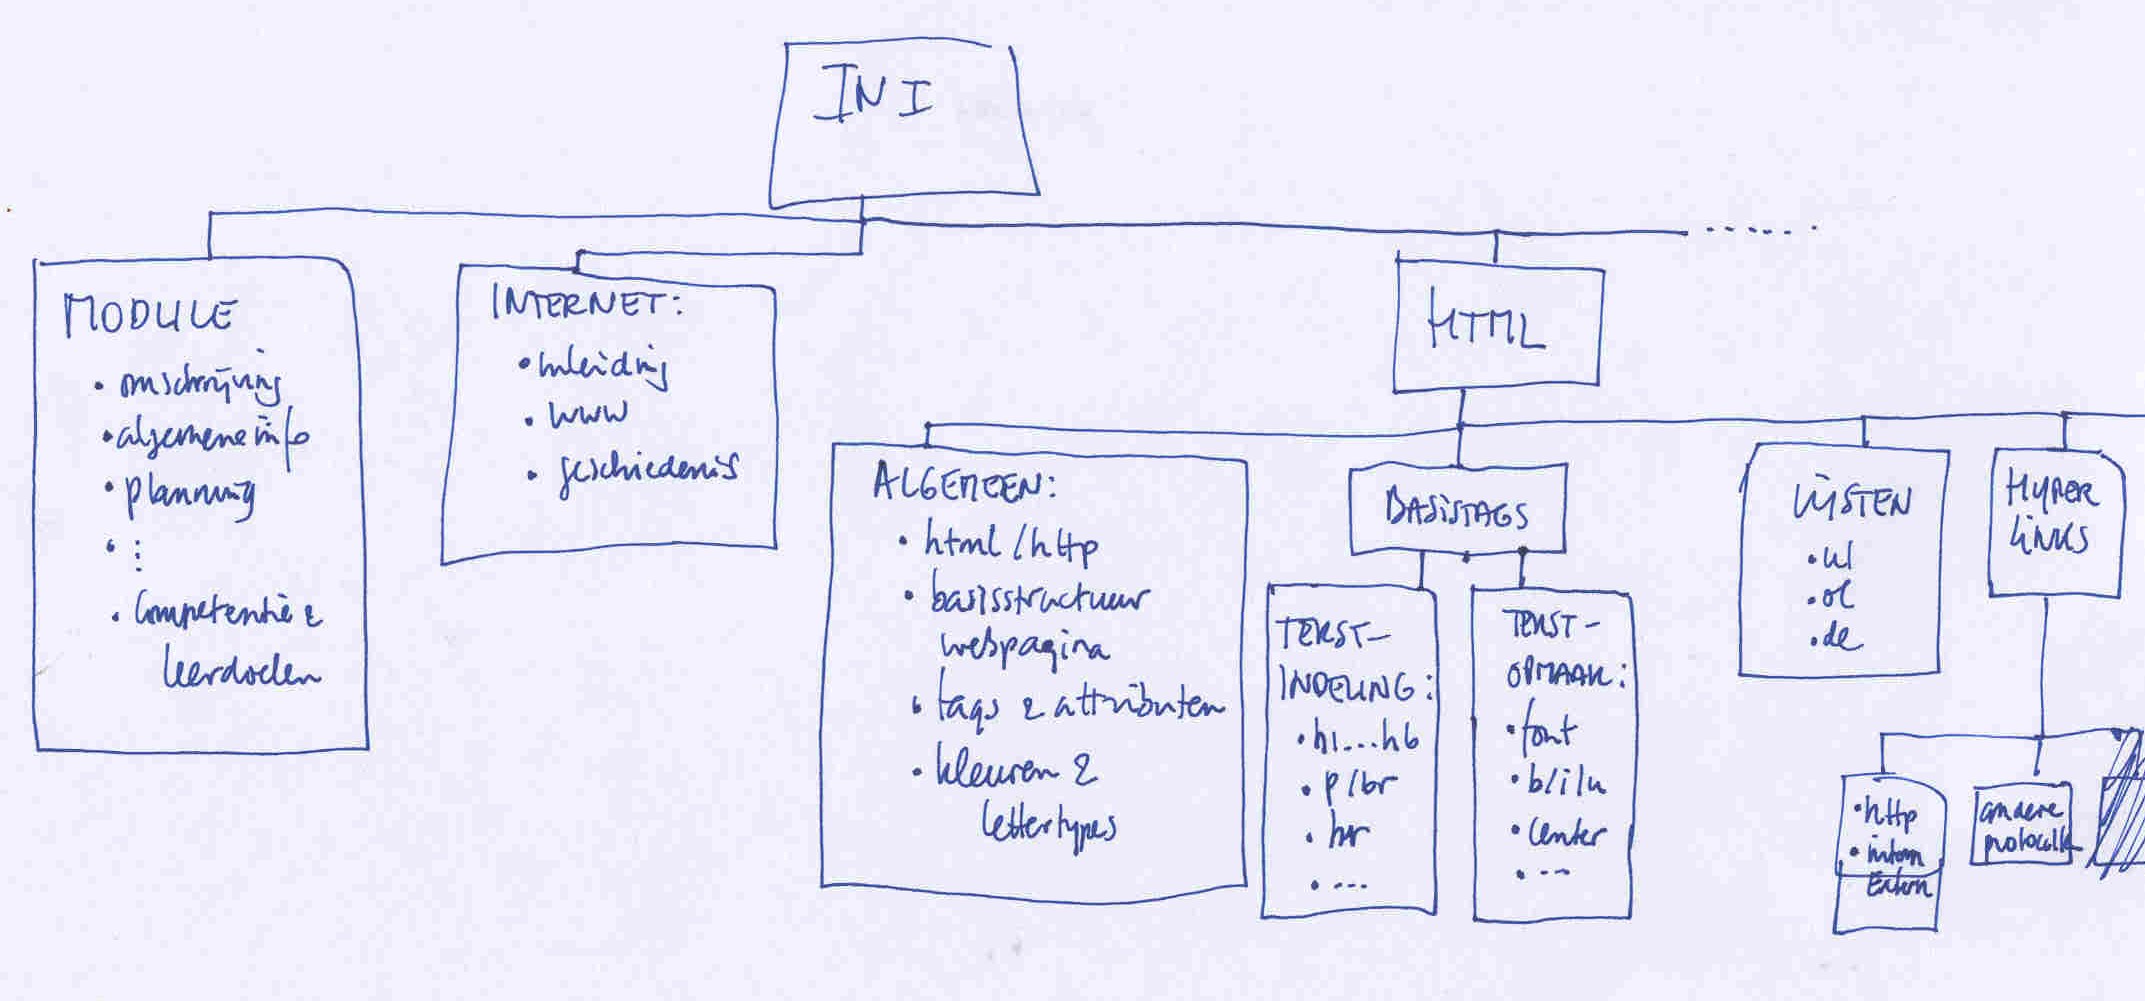 INI
MODULE
• omschrijving
• algemene info
• planning
• ⋮
• Competentie &
leerdoelen
INTERNET:
• inleiding
• WWW
• geschiedenis
HTML
ALGEMEEN:
• html / http
• basisstructuur
webpagina
• tags & attributen
• kleuren &
lettertypes
BASISTAGS
TEKST-
INDELING:
• h1...h6
• p/br
• hr
• ...
TEKST-
OPMAAK:
• font
• b/i/u
• center
• ...
LIJSTEN
• ul
• ol
• de
HYPER
LINKS
• http
• intern
Extern
andere
protocolle